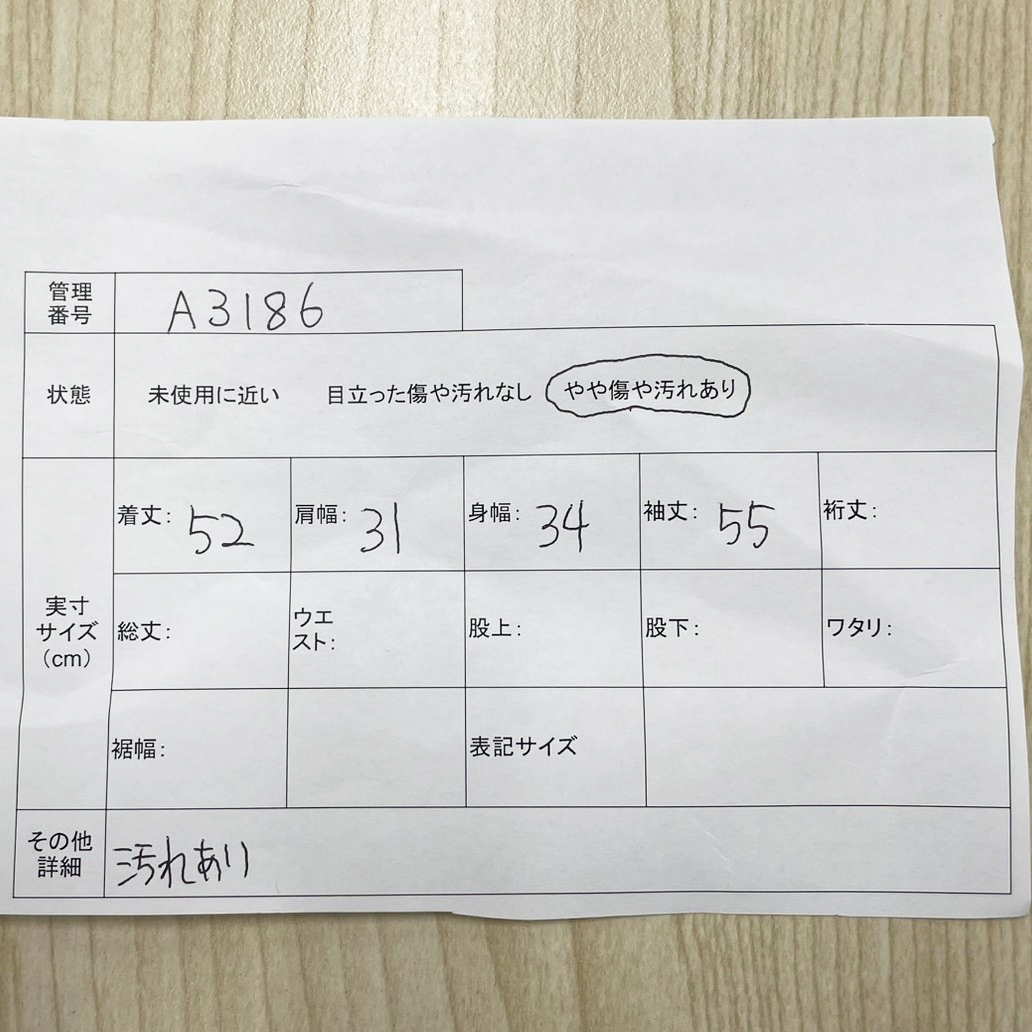 管理
番号
A3186
状態
未使用に近い 目立った傷や汚れなし やや傷や汚れあり
実寸
サイズ
(cm)
着丈: 52 肩幅: 31 身幅: 34 袖丈: 55 裄丈:
総丈: ウエ
スト: 股上: 股下: ワタリ:
裾幅: 表記サイズ
その他
詳細
汚れあり